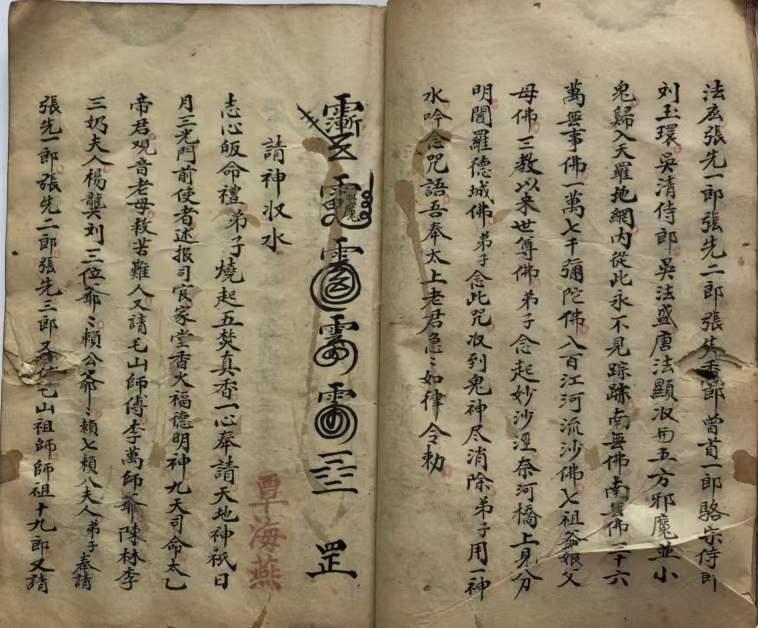 法㡳張先一郎張先二郎張先香郎曾首一郎駱宗侍郎
刘玉環吳清侍郎吳法盛唐法顯收囬五方邪魔並小
鬼歸入天羅地網內從此永不見踪跡南無佛南無佛二十六
萬無事佛一萬七千彌陀佛八百江河流沙佛七祖爺娘父
母佛三教以来世尊佛弟子念起妙沙溼奈河橋上見分
明閻羅德城佛弟子念此咒收到鬼神尽消除弟子用一神
水吟念咒語吾奉太上老君急〻如律令勅
罡
請神收水
覃海燕
志心皈命禮弟子燒起五焚真香一心奉請天地神祇日
月三光門前使者述报司官家堂香火福德明神九天司命太乙
帝君观音老母救苦難人又請毛山師傅李萬師爺陳林李
三奶夫人楊龔刘三位爺〻賴公爺〻賴七賴八夫人弟子奉請
張先一郎張先二郎張先三郎又奉請毛山祖師師祖十九郎又請